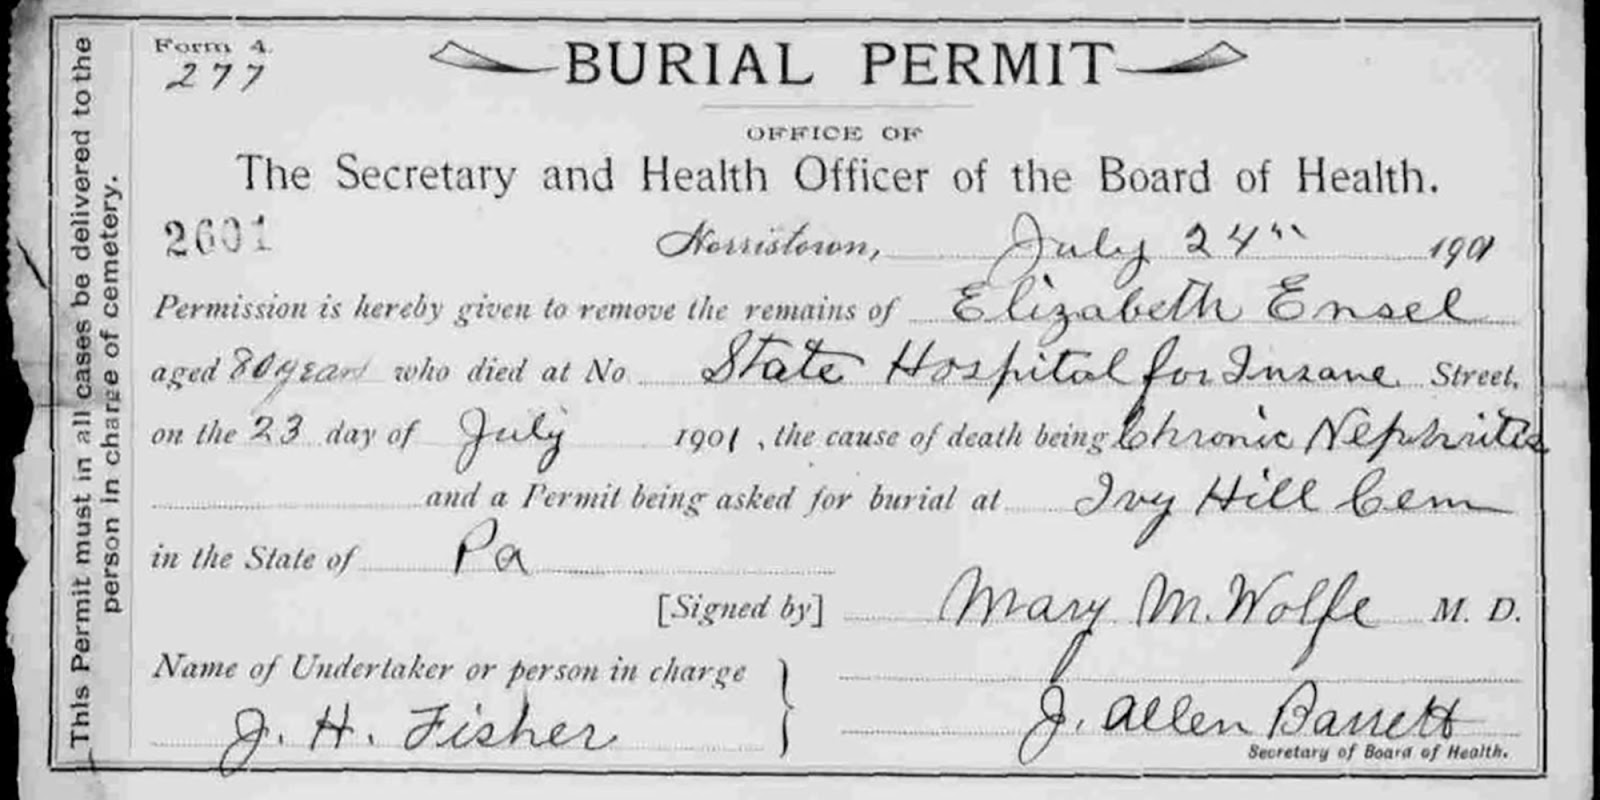 Form 4.
277
BURIAL PERMIT
OFFICE OF
The Secretary and Health Officer of the Board of Health.
2601
Norristown, July 24" 1901
Permission is hereby given to remove the remains of Elizabeth Ensel
aged 80 years who died at No State Hospital for Insane Street,
on the 23 day of July 1901, the cause of death being Chronic Nephritis
and a Permit being asked for burial at Ivy Hill Cem
in the State of Pa
[Signed by] Mary M. Wolfe M. D.
Name of Undertaker or person in charge
J. H. Fisher
J. Allen Barrett
Secretary of Board of Health.
This Permit must in all cases be delivered to the
person in charge of cemetery.